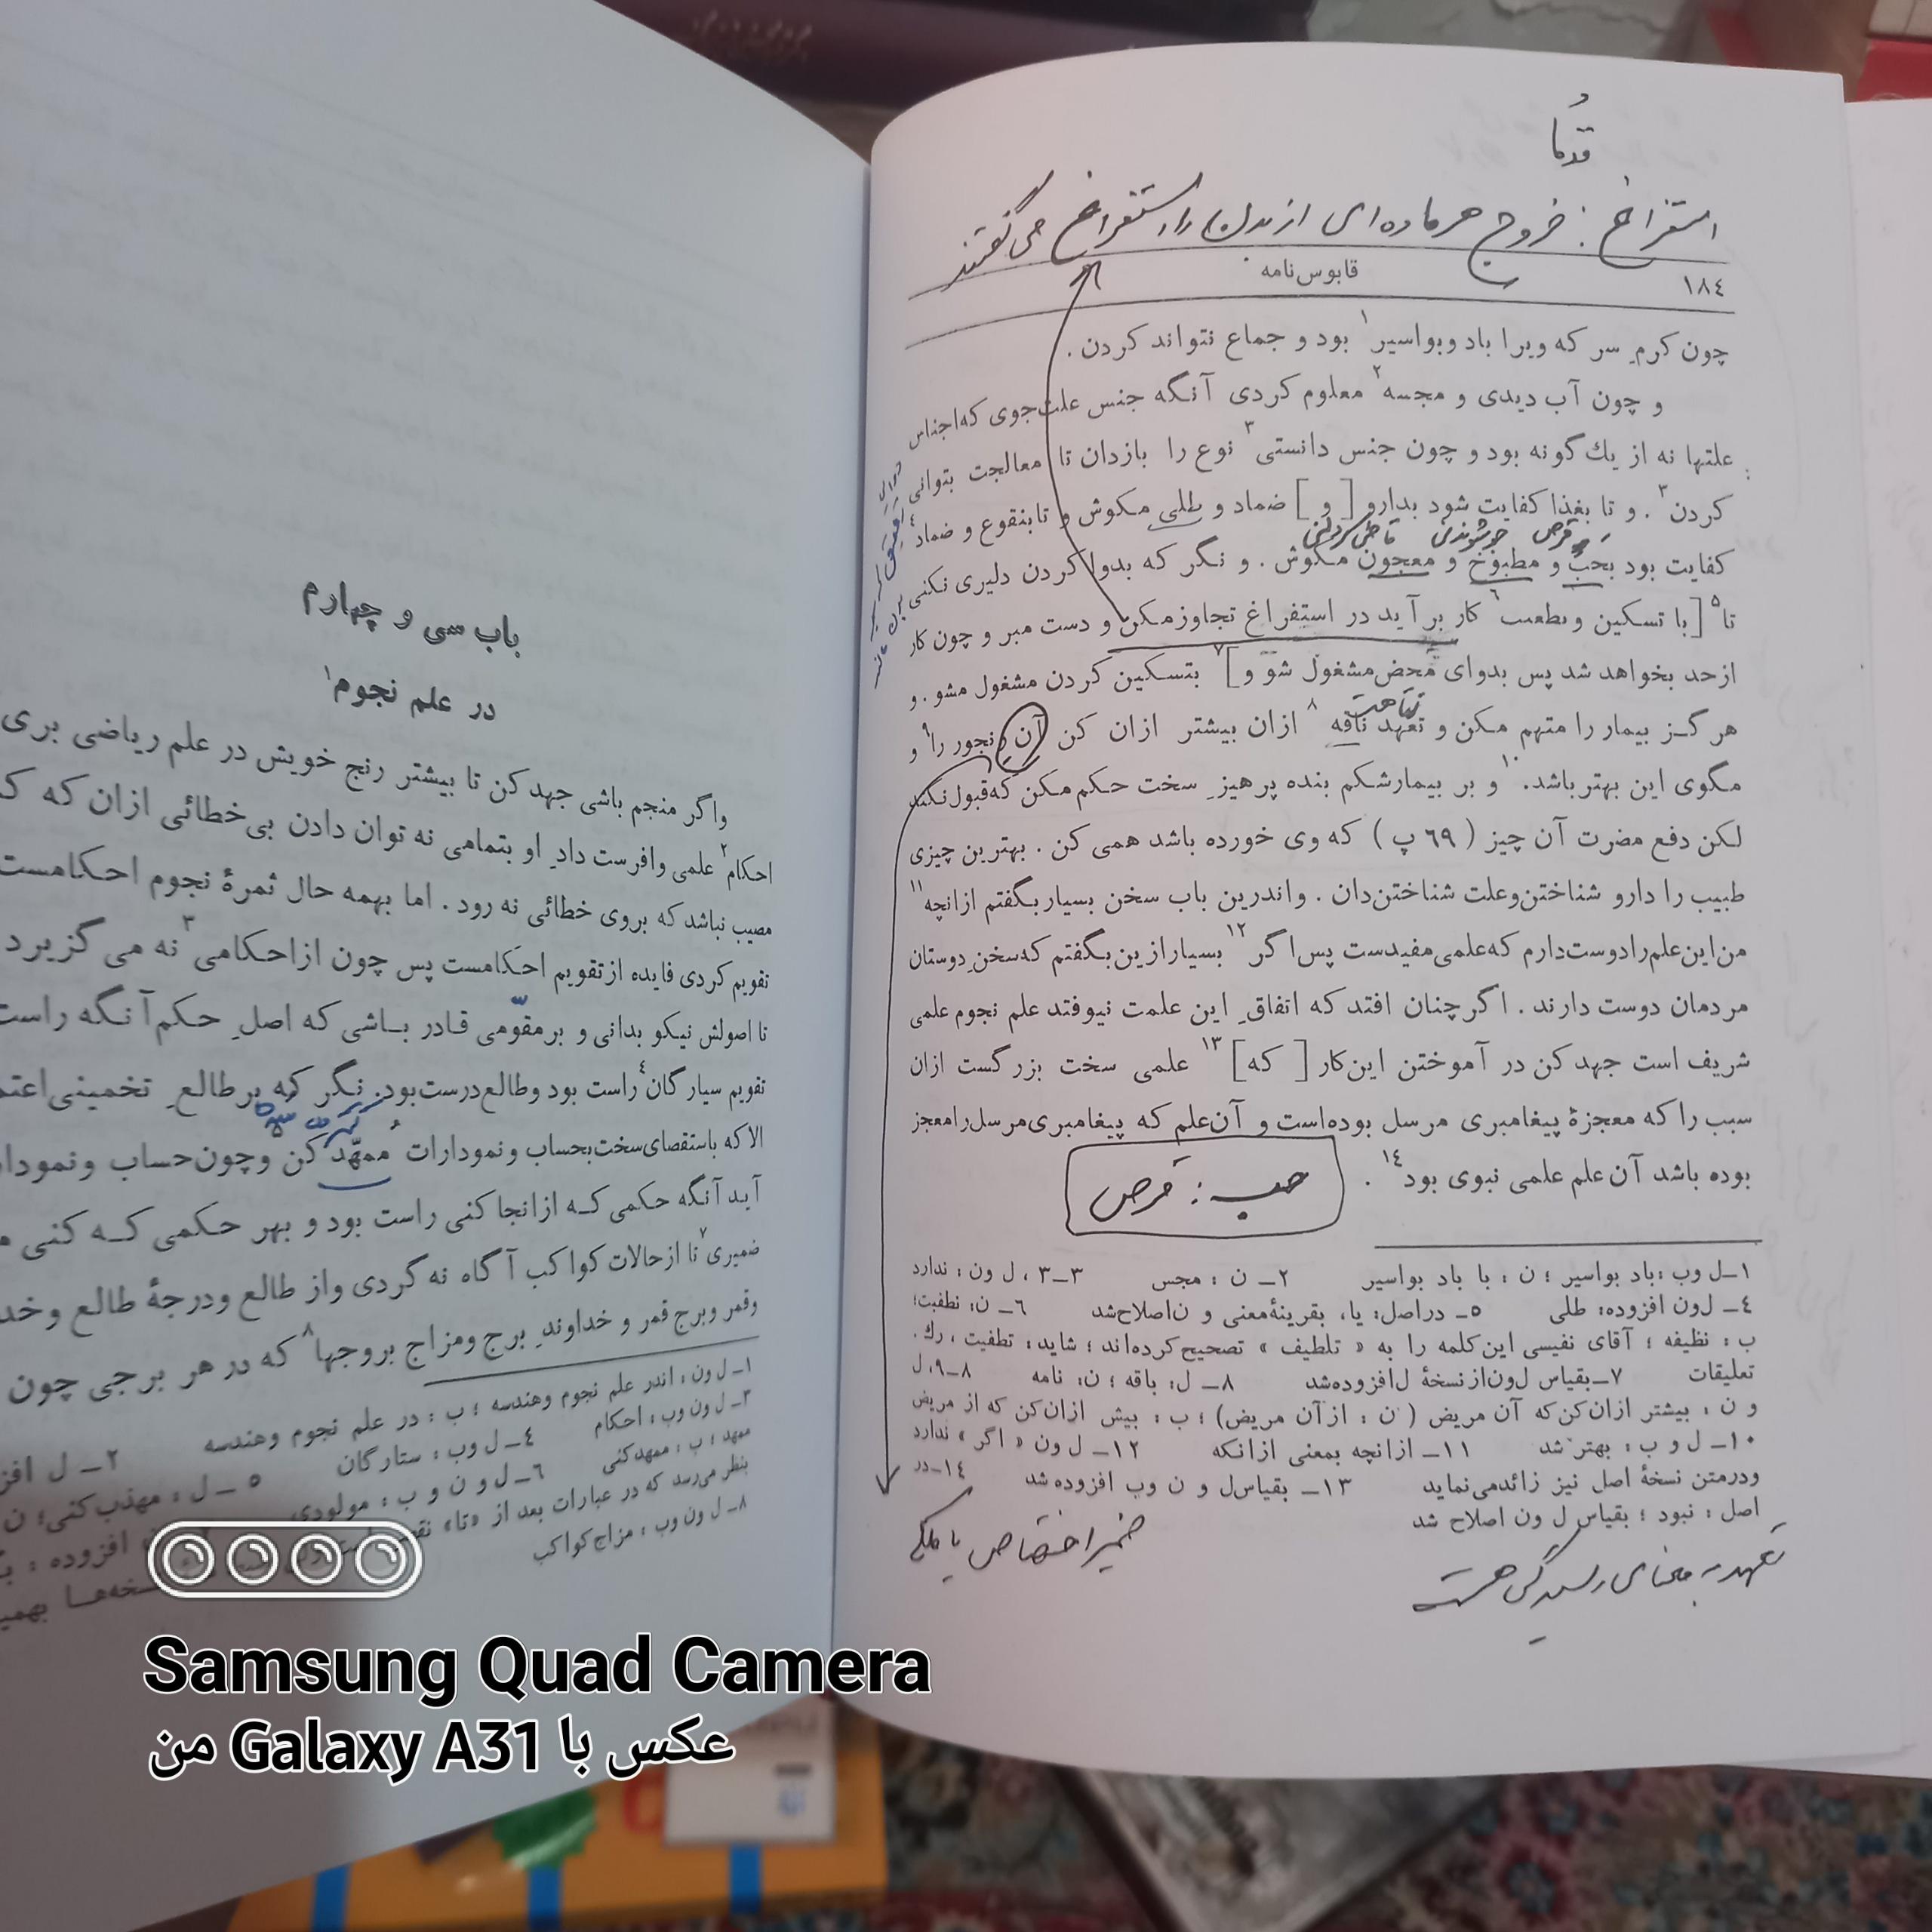 قدما
استفراغ: خروج هر ماده‌ای از بدن را استفراغ می‌گفتند
١٨٤
قابوس‌نامه
چون کرمِ سر که ویرا باد وبواسیر١ بود و جماع نتواند کردن .
و چون آب دیدی و مجسه٢ معلوم کردی آنگه جنس علت‌جوی که‌اجناس
علتها نه از یك گونه بود و چون جنس دانستی٣ نوع را بازدان تا معالجت بتوانی
کردن٣ . و تا بغذا کفایت شود بدارو [ و ] ضماد و طلی مکوش و تابنقوع و ضماد٤
قرص جوشوندنی قاطی کردنی
کفایت بود بحب و مطبوخ و معجون مکوش . و نگر که بدوا کردن دلیری نکنی
تا٥ [با تسکین و کار بر آید در استفراغ تجاوزمکن و دست مبر و چون کار
ازحد بخواهد شد پس بدوای محض‌مشغول شو و]٧ بتسکین کردن مشغول مشو . و
نقاهت
هر گـز بیمار را متهم مکن و تعهد ناقه٨ ازان بیشتر ازان کن آن رنجور را٩ و
مگوی این بهترباشد.١٠ و بر بیمارشکم بنده پرهیزِ سخت حکم‌مکن که‌قبول‌نکند
لکن دفع مضرت آن چیز ( ٦٩ پ ) که وی خورده باشد همی کن . بهترین چیزی
طبیب را دارو شناختن‌وعلت شناختن‌دان . واندرین باب سخن بسیاربگفتم ازانچه١١
من‌این‌علم‌رادوست‌دارم که‌علمی‌مفیدست پس‌اگر١٢ بسیارازین‌بگفتم که‌سخن‌ِدوستان
مردمان دوست دارند . اگرچنان افتد که اتفاقِ این علمت نیوفتد علم نجوم علمی
شریف است جهدکن در آموختن این‌کار [ که ]١٣ علمی سخت بزرگست ازان
سبب راکه معجزهٔ پیغامبری مرسل بوده‌است و آن‌علم که پیغامبری‌مرسل‌رامعجز
بوده باشد آن‌علم علمی نبوی بود١٤ .
حب: قرص
١ـ ل وب :باد بواسیر ؛ ن : با باد بواسیر ٢ـ ن : مجس ٣ـ٣ ، ل ون : ندارد
٤ـ ل‌ون افزوده: طلی ٥ـ دراصل: یا، بقرینهٔ‌معنی و ن‌اصلاح‌شد ٦ـ ن: نطفبت؛
ب : نظیفه ؛ آقای نفیسی این‌کلمه را به « تلطیف » تصحیح کرده‌اند ؛ شاید : تطفیت ، رك.
تعلیقات ٧ـ بقیاس ل‌ون‌ازنسخهٔ ل‌افزوده‌شد ٨ـ ل: باقه ؛ ن: نامه ٨ـ٩، ل
و ن : بیشتر ازان‌کن‌که آن مریض ( ن : ازآن مریض) ؛ ب : بیش ازان‌کن که از مریض
١٠ـ ل و ب : بهتر شد ١١ـ ازانچه بمعنی ازانکه ١٢ـ ل ون « اگر » ندارد
ودرمتن نسخهٔ اصل نیز زائدمی‌نماید ١٣ـ بقیاس‌ل و ن وب افزوده شد ١٤ـ در
اصل : نبود ؛ بقیاس ل ون اصلاح شد
ضمیر اختصاص یا ملکی
تعهد به معنای رسیدگی هست
باب سی و چهارم
در علم نجوم١
واگر منجم باشی جهدکن تا بیشتر رنج خویش در علم ریاضی بری
احکام٢ علمی وافرست دادِ او بتمامی نه توان دادن بی‌خطائی ازان که
مصیب نباشد که بروی خطائی نه رود . اما بهمه حال ثمرهٔ نجوم احکامست
تقویم کردی فایده ازتقویم احکامست پس چون ازاحکامی٣ نه می گزیرد
تا اصولش نیکو بدانی و برمقوّمی قادر باشی که اصلِ حکم‌آنگه راست
تقویم سیارگان٤ راست بود وطالع‌درست‌بود. نگر که بر طالعِ تخمینی
گسترده شده
الاکه باستقصای‌سخت‌بحساب ونمودارات مُمهّد کن وچون‌حساب ونمودار
آید آنگه حکمی کـه ازانجاکنی راست بود و بهر حکمی کـه کنی
ضمیری٧ تا ازحالات کواکب آگاه نه گردی واز طالع ودرجهٔ طالع
وقمر وبرج قمر و خداوندِ برج ومزاج بروجها٨ که در هر برجی چون
١ـ ل ون : اندر علم نجوم وهندسه ؛ ب : در علم نجوم وهندسه ٢ـ ل
٣ـ ل ون وب : احکام ٤ـ ل وب : ستارگان ٥ ـ ل : مهذب‌کنی؛ ن
ممهد ؛ ب : ممهدکنی ٦ـ ل و ن و ب : مولودی افزوده :
بنظر می‌رسد که در عبارات بعد از «تا»
٨ـ ل ون وب : مزاج‌کواکب
Samsung Quad Camera
عکس با Galaxy A31 من